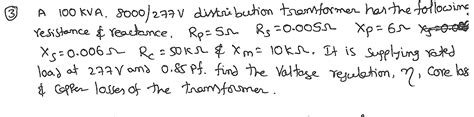 ③ A 100 KVA, 8000/277V distribution transformer has the following
resistance & reactance. Rp=5Ω Rs=0.005Ω Xp=6Ω
Xs=0.006Ω Rc=50KΩ & Xm=10KΩ. It is supplying rated
load at 277V and 0.85 Pf. find the Voltage regulation, η, Core loss
& Copper losses of the transformer.